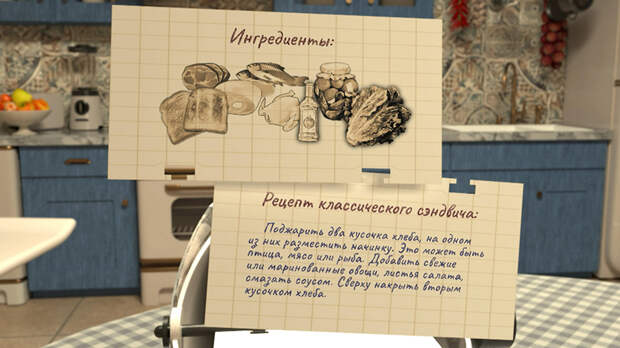 Ингредиенты:
Рецепт классического сэндвича:
Поджарить два кусочка хлеба, на одном
из них разместить начинку. Это может быть
птица, мясо или рыба. Добавить свежие
или маринованные овощи, листья салата,
смазать соусом. Сверху накрыть вторым
кусочком хлеба.